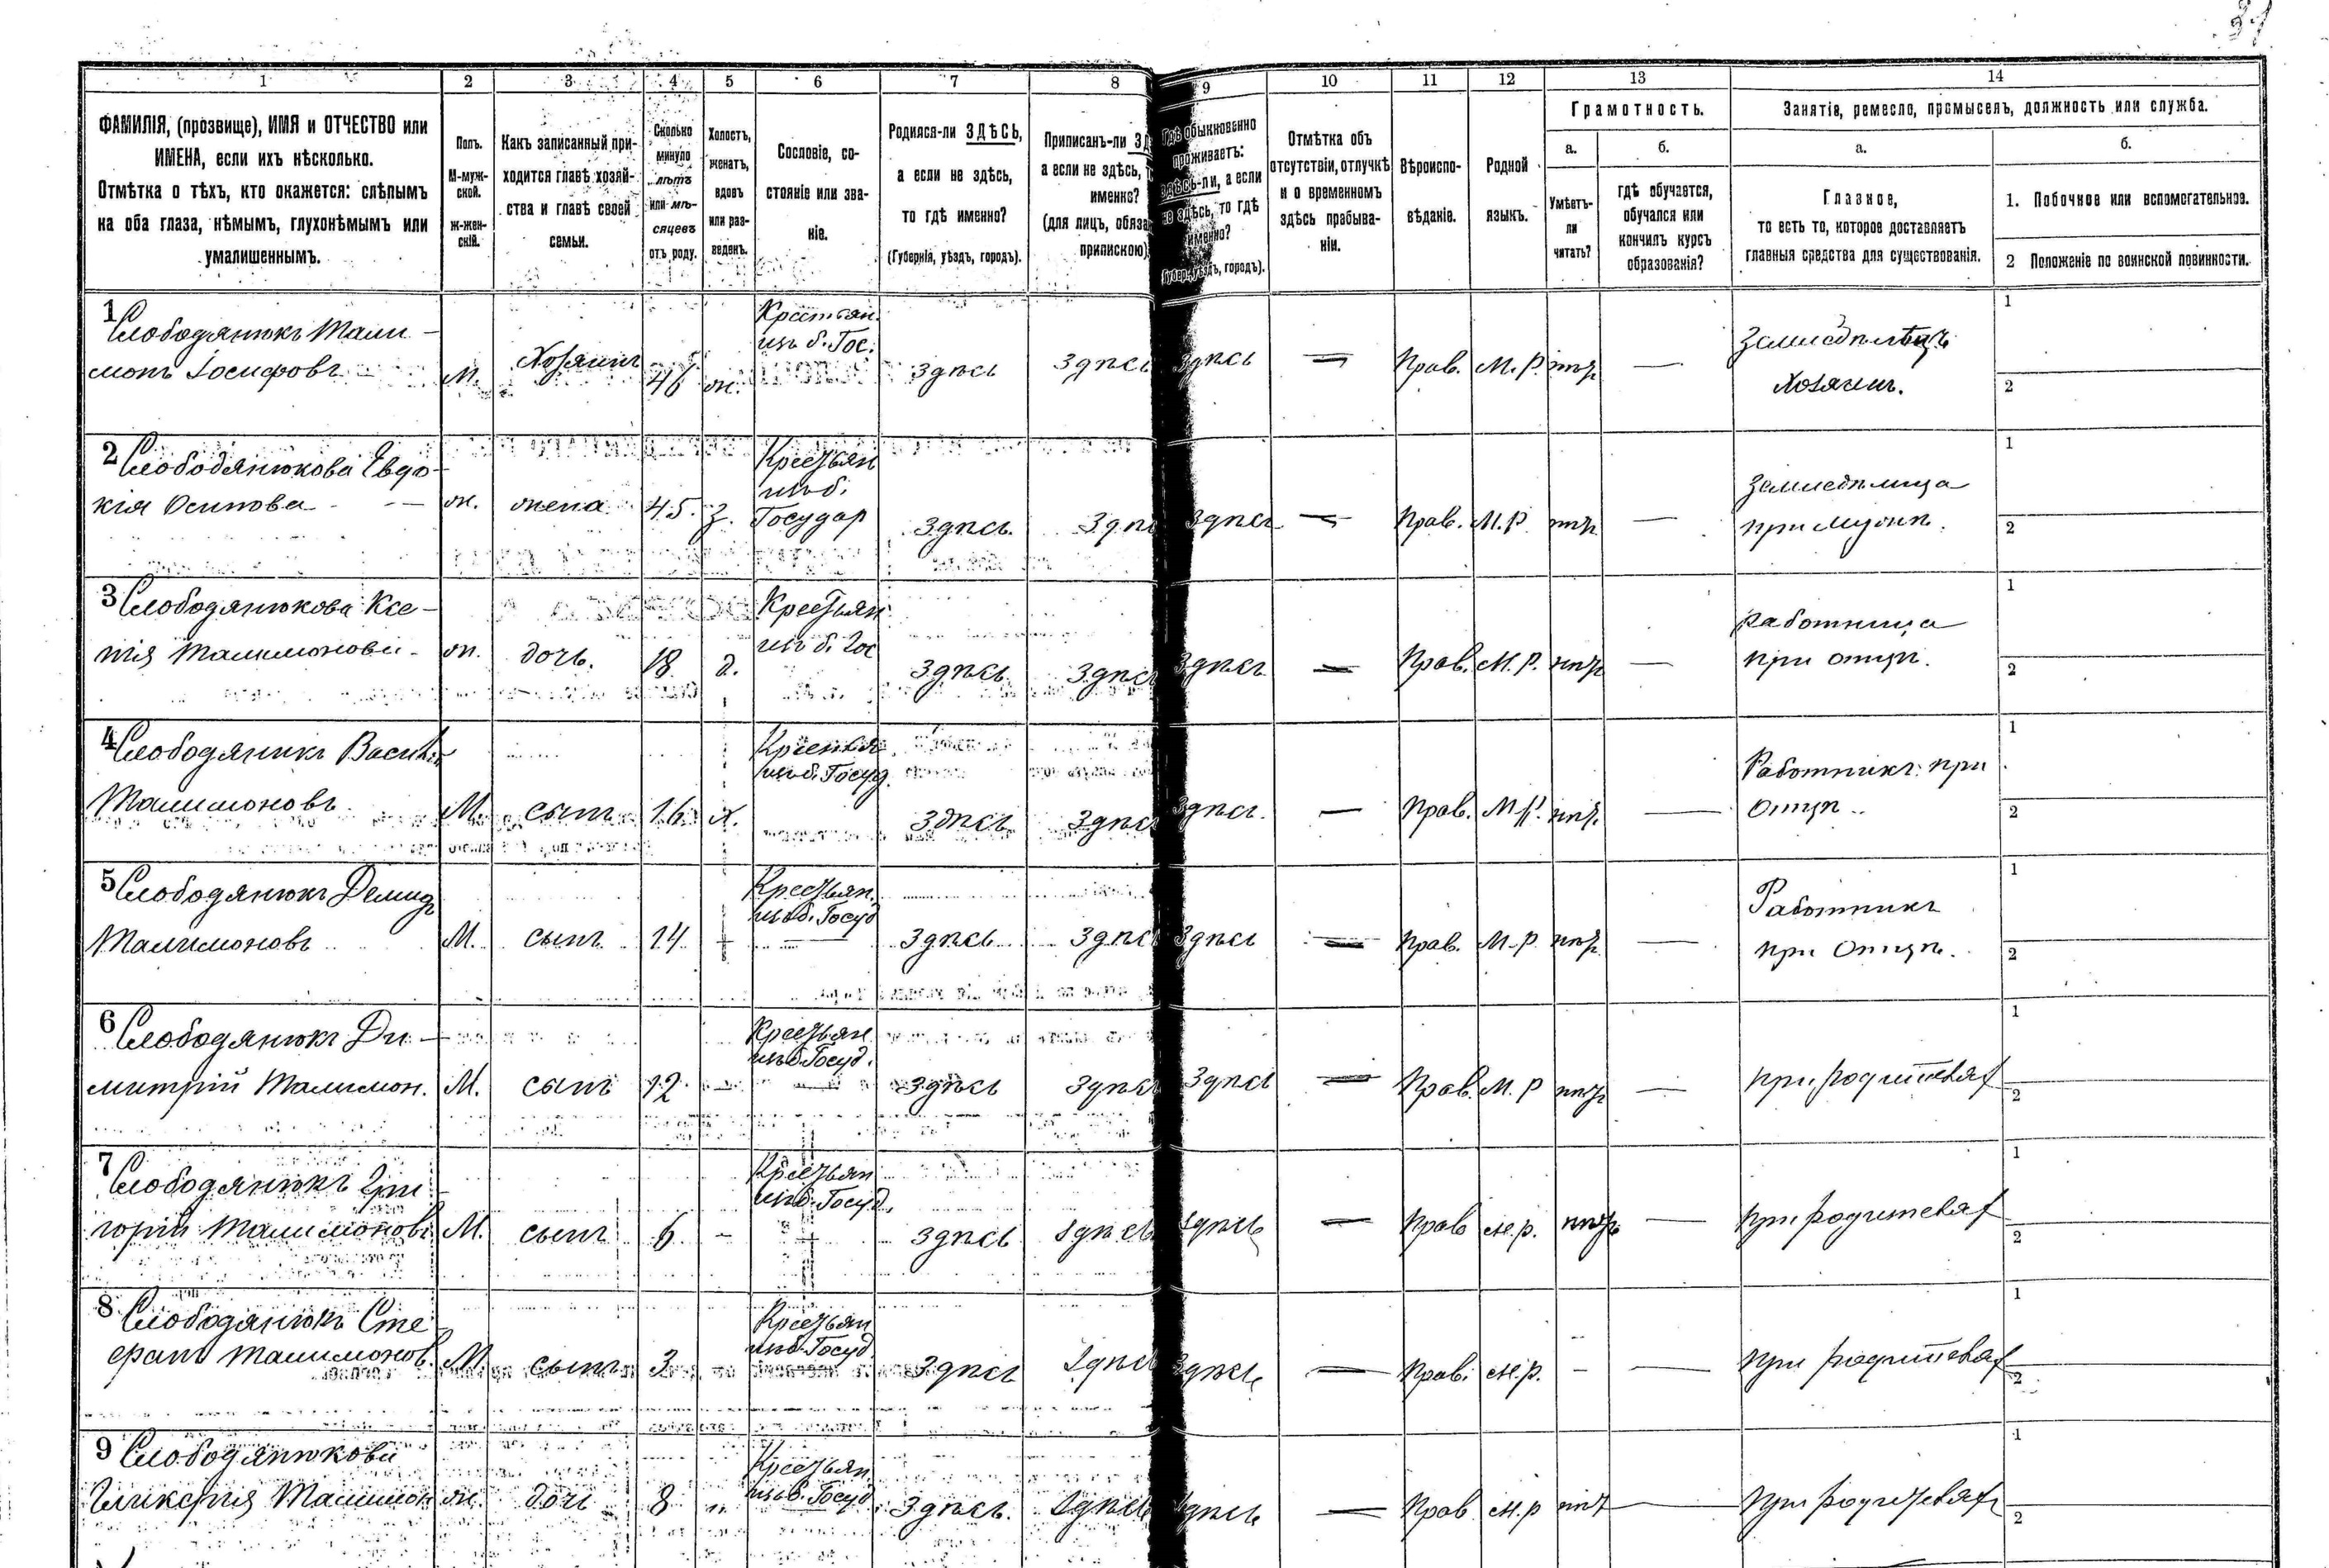 31
1 2 3 4 5 6 7 8 9 10 11 12 13 14
ФАМИЛІЯ, (прозвище), ИМЯ и ОТЧЕСТВО или
ИМЕНА, если ихъ нѣсколько.
Отмѣтка о тѣхъ, кто окажется: слѣпымъ
на оба глаза, нѣмымъ, глухонѣмымъ или
умалишеннымъ.
Полъ.
М-муж-
ской.
Ж-жен-
скій.
Какъ записанный при-
ходится главѣ хозяй-
ства и главѣ своей
семьи.
Сколько
минуло
лѣтъ
или мѣ-
сяцевъ
отъ роду.
Холостъ,
женатъ,
вдовъ
или раз-
веденъ.
Сословіе, со-
стояніе или зва-
ніе.
Родился-ли ЗДѢСЬ,
а если не здѣсь,
то гдѣ именно?
(Губернія, уѣздъ, городъ).
Приписанъ-ли
а если не здѣсь,
именно?
(для лицъ,
припискою)
Гдѣ обыкновенно
проживаетъ:
здѣсь-ли, а если
не здѣсь, то гдѣ
именно?
(Губер., уѣздъ, городъ).
Отмѣтка объ
отсутствіи, отлучкѣ
и о временномъ
здѣсь пребыва-
ніи.
Вѣроиспо-
вѣданіе.
Родной
языкъ.
Грамотность.
а.
Умѣетъ-
ли
читать?
б.
гдѣ обучается,
обучался или
кончилъ курсъ
образованія?
Занятіе, ремесло, промыселъ, должность или служба.
а.
Главное,
то есть то, которое доставляетъ
главныя средства для существованія.
б.
1. Побочное или вспомогательное.
2 Положеніе по воинской повинности.
1 Слободянюкъ Мали-
монъ Іосифовъ М. Хозяинъ 46 ж. Крестьян. изъ б. Гос. Здѣсь Здѣсь Здѣсь — Прав. М.Р. нѣтъ — Земледѣлецъ
Хозяинъ. 1 2
2 Слободянюкова Евдо-
кія Осипова — ж. жена 45. з. Крестьян изъ б. Государ Здѣсь Здѣсь Здѣсь — Прав. М.Р. нѣтъ — Земледѣлица
при мужѣ. 1 2
3 Слободянюкова Ксе-
нія Малимонова ж. дочь. 18 д. Крестьян изъ б. Гос Здѣсь Здѣсь Здѣсь — Прав. М.Р. нѣтъ — Работница
при отцѣ. 1 2
4 Слободянюкъ Василій
Малимоновъ М. сынъ 16 х. Крестья изъ б. Госуд. Здѣсь Здѣсь Здѣсь — Прав. М.Р. нѣтъ — Работникъ при
отцѣ 1 2
5 Слободянюкъ Демидъ
Малимоновъ М. сынъ 14 Крестьян. изъ б. Госуд Здѣсь Здѣсь Здѣсь — Прав. М.Р нѣтъ — Работникъ
при Отцѣ. 1 2
6 Слободянюкъ Ди-
митрій Малимон. М. сынъ 12 — Крестьян изъ б. Госуд. Здѣсь Здѣсь Здѣсь — Прав. М.Р нѣтъ — при родителях 1 2
7 Слободянюкъ Гри
горій Малимоновъ М. сынъ 6 — Крестьян изъ б. Госуд. Здѣсь Здѣсь Здѣсь — Прав М.р. нѣтъ — при родителях 1 2
8 Слободянюкъ Сте
фанъ Малимонов. М. сынъ 3 — Крестьян изъ б. Госуд. Здѣсь Здѣсь Здѣсь — Прав. М.р. — — при родителях 1 2
9 Слободянюкова
Гликерія Малимон ж. дочь 8 Крестьян. изъ б. Госуд Здѣсь. Здѣсь Здѣсь — Прав М.р нѣт — при родителях 1 2